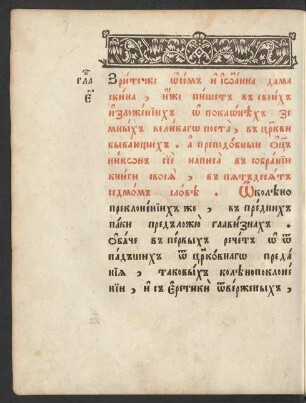 гла
є҃
Зри́те же ѡ҆ се́мъ и҆ і҆ѡа́нна дама
скина , и҆́же пи́шетъ въ свои́хъ
и҆зложе́нїихъ ѡ҆ покло́нѣхъ зе
мны́хъ вели́каго поста̀ , въ цр҃кви
быва́ющихъ . а҆ преподо́бный ѻ҆ц҃ъ
ни́конъ сїѐ написа̀ въ собра́нїи
кни́ги своеѧ̀ , въ пѧтьдесѧ́т
седмо́мъ сло́вѣ . Ѿ колѣ́но
преклоне́нїихъ же , въ пре́днихъ
па́ки предложю̀ глави́знахъ .
Ѻ҆ба́че въ пе́рвыхъ рече́тъ ѡ҆ ѿ
па́дшихъ ѿ цр҃ко́внаго преда́
нїѧ , таковы́хъ колѣ́нопоклоне́
нїи , и҆ съ є҆ретикѝ ѿве́рженыхъ ,